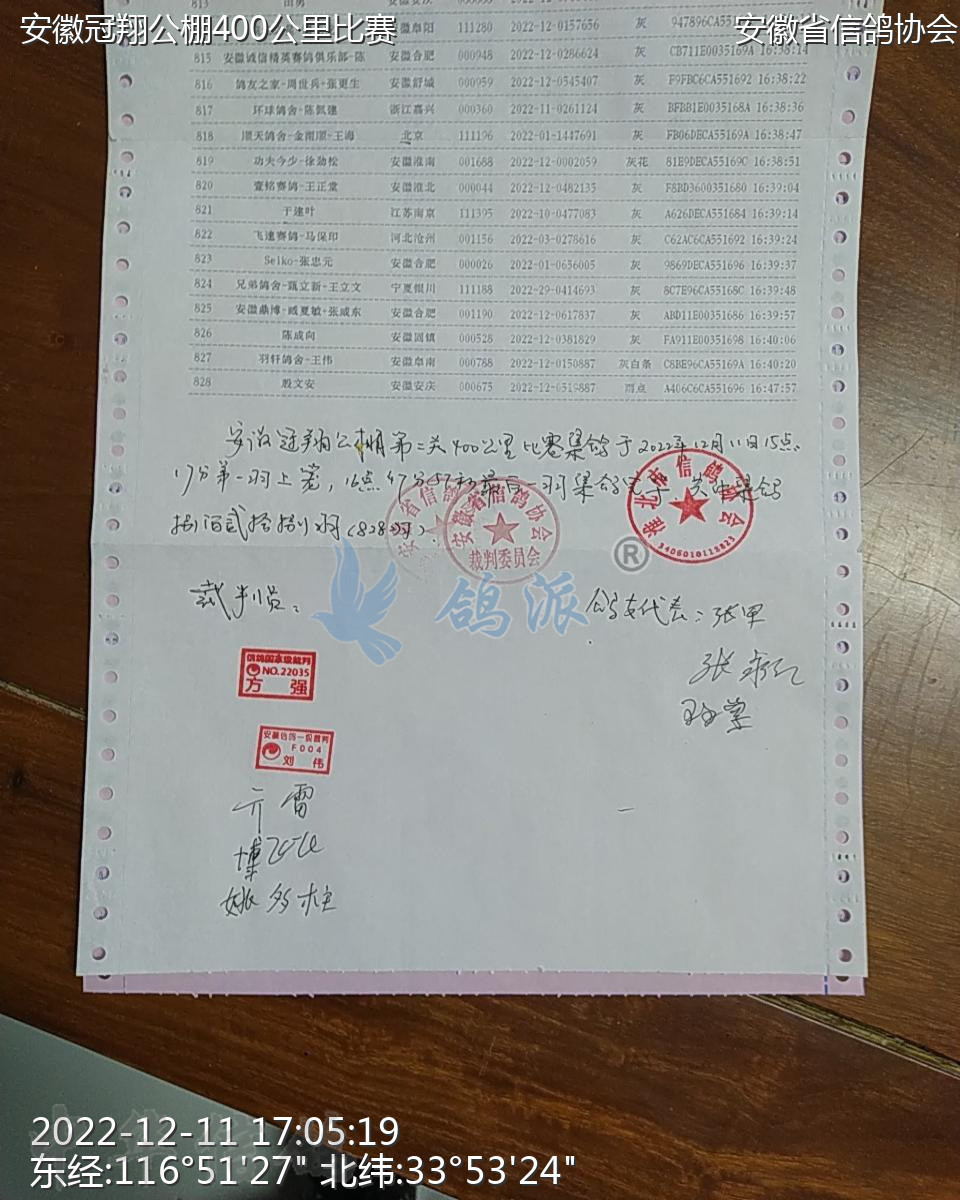 安徽冠翔公棚400公里比赛
安徽省信鸽协会
813 田勇 安徽安庆
安徽阜阳 111280 2022-12-0157656 灰 947896CA55
815 安徽诚信精英赛鸽俱乐部-陈 安徽合肥 000948 2022-12-0286624 灰 CB711E0035169A 16:38:14
816 鸽友之家-周世兵-张更生 安徽舒城 000959 2022-12-0545407 灰 F9FBC6CA551692 16:38:22
817 环球鸽舍-陈凯建 浙江嘉兴 000360 2022-11-0261124 灰 BFBB1E0035168A 16:38:36
818 顺天鸽舍-金雨顺-王海 北京 111196 2022-01-1447691 灰 FB06DECA55169A 16:38:47
819 功夫今少-徐劲松 安徽淮南 001688 2022-12-0002059 灰花 81E9DECA55169C 16:38:51
820 壹铭赛鸽-王正堂 安徽淮北 000044 2022-12-0482135 灰 F8BD3600351680 16:39:04
821 于建叶 江苏南京 111395 2022-10-0477083 灰 A626DECA551684 16:39:14
822 飞速赛鸽-马保印 河北沧州 001156 2022-03-0278616 灰 C62AC6CA551692 16:39:24
823 Seiko-张忠元 安徽合肥 000026 2022-01-0656005 灰 9869DECA551696 16:39:37
824 兄弟鸽舍-甄立新-王立文 宁夏银川 111188 2022-29-0414693 灰 8C7E96CA55168C 16:39:48
825 安徽鼎博-臧夏敏-张威东 安徽合肥 001190 2022-12-0617837 灰 ABD11E00351686 16:39:57
826 陈成向 安徽固镇 000528 2022-12-0381829 灰 FA911E00351698 16:40:06
827 羽轩鸽舍-王伟 安徽阜南 000788 2022-12-0150887 灰白条 C8BE96CA55169A 16:40:20
828 殷文安 安徽安庆 000675 2022-12-0519887 雨点 A406C6CA551696 16:47:57
安徽冠翔公棚第二关400公里比赛集鸽于2022年12月11日15点
17分第一羽上笼，16点47分57秒最后一羽集鸽完毕 共计集鸽
捌佰贰拾捌羽（828羽）.
安徽省信鸽协会
裁判委员会
淮北市信鸽协会
3406010112823
鸽派 ®
裁判员：
鸽友代表：张甲
信鸽国家级裁判
NO.22035
方强
安徽信鸽一级裁判
F004
刘伟
亓雷
姚多柱
2022-12-11 17:05:19
东经:116°51'27" 北纬:33°53'24"